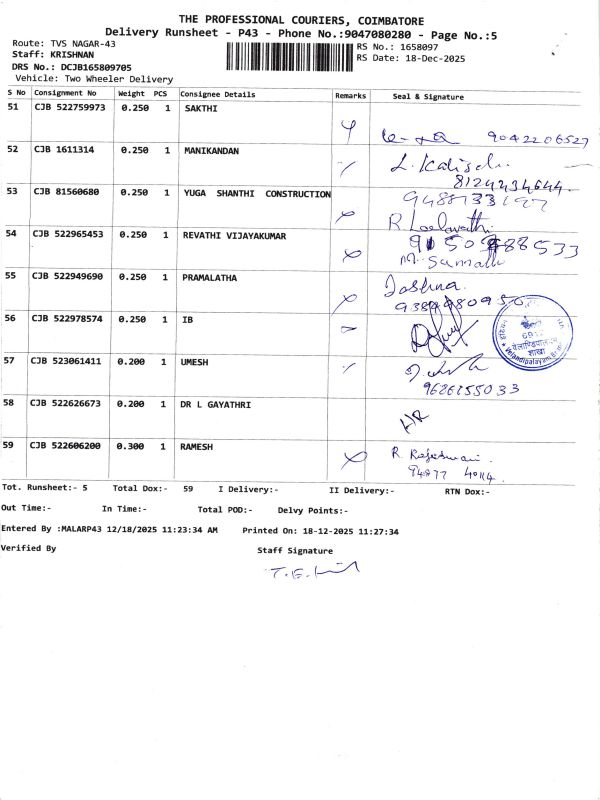 THE PROFESSIONAL COURIERS, COIMBATORE
Delivery Runsheet - P43 - Phone No.:9047080280 - Page No.:5
Route: TVS NAGAR-43
Staff: KRISHNAN
DRS No.: DCJB165809705
Vehicle: Two Wheeler Delivery
RS No.: 1658097
RS Date: 18-Dec-2025
S No Consignment No Weight PCS Consignee Details Remarks Seal & Signature
51 CJB 522759973 0.250 1 SAKTHI
9042206527
52 CJB 1611314 0.250 1 MANIKANDAN
8124434644
53 CJB 81560680 0.250 1 YUGA SHANTHI CONSTRUCTION
R. Leelavathi
54 CJB 522965453 0.250 1 REVATHI VIJAYAKUMAR
M. Sumathi
55 CJB 522949690 0.250 1 PRAMALATHA
Joshna.
56 CJB 522978574 0.250 1 IB
शाखा
57 CJB 523061411 0.200 1 UMESH
9626155033
58 CJB 522626673 0.200 1 DR L GAYATHRI
59 CJB 522606200 0.300 1 RAMESH
R. Rajeshwari
94877 40114
Tot. Runsheet:- 5 Total Dox:- 59 I Delivery:- II Delivery:- RTN Dox:-
Out Time:- In Time:- Total POD:- Delvy Points:-
Entered By :MALARP43 12/18/2025 11:23:34 AM Printed On: 18-12-2025 11:27:34
Verified By Staff Signature